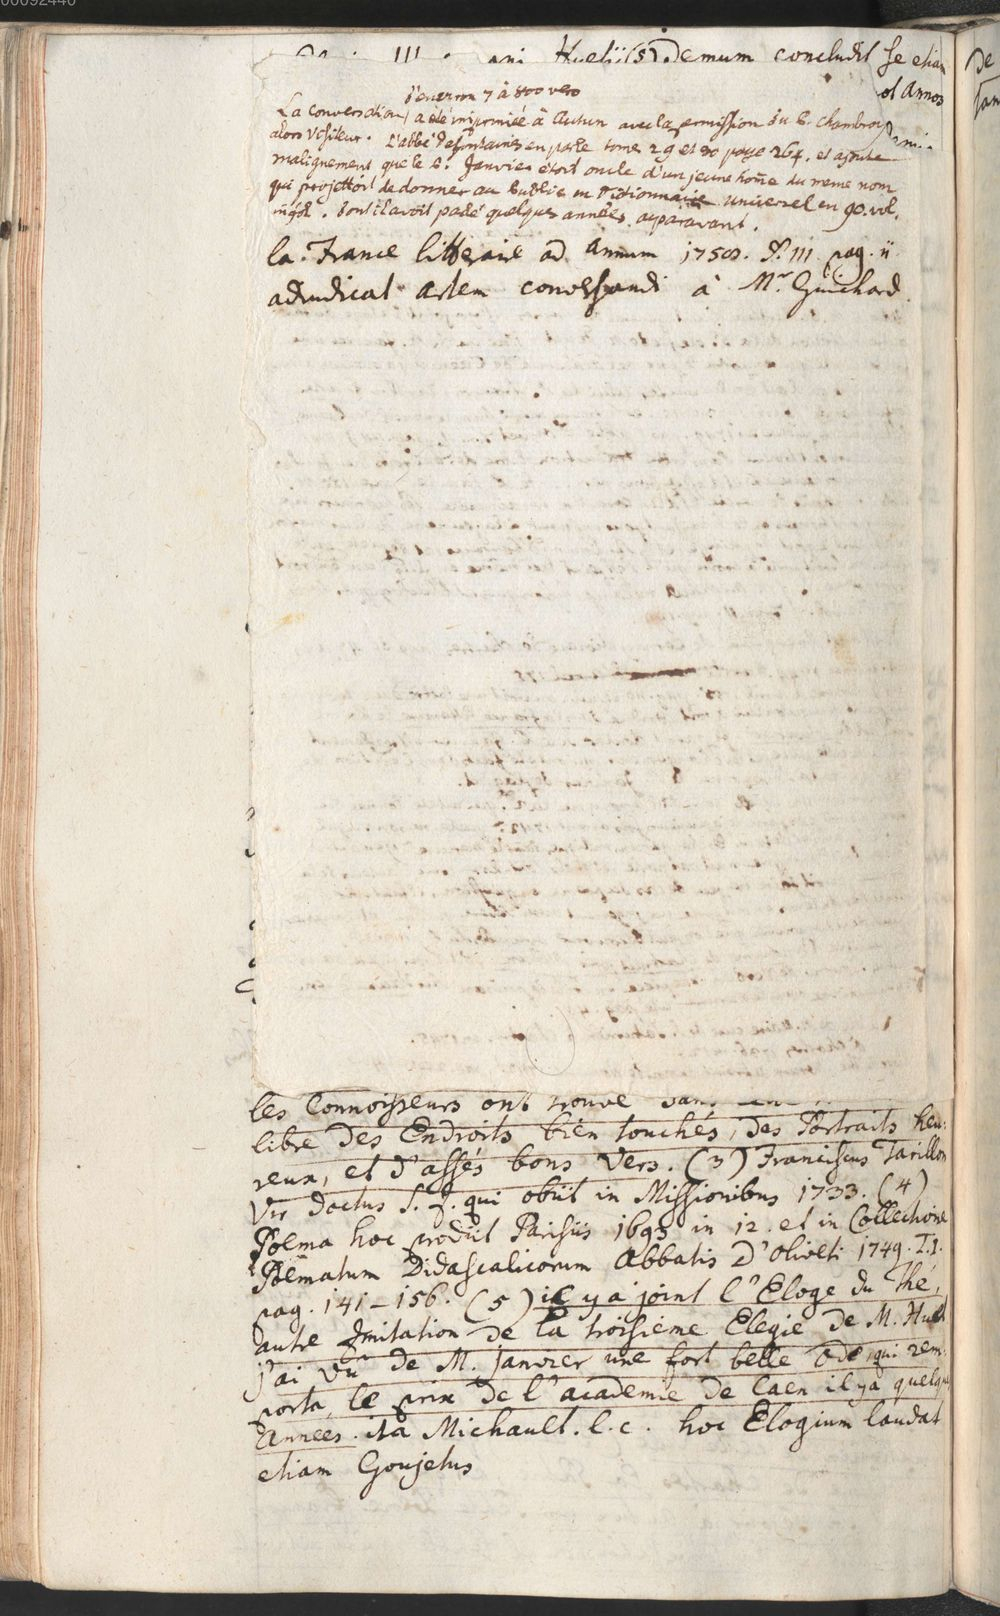 00092440
III Huetii (5) Demum concludit se etiam
ol Annos
d'environ 7 à 800 vers
La Conversation a été imprimée à Autun avec la permission du P. Chambroy
alors Visiteur. L'abbé Desfontaines en parle tome 29 et 30 page 264. et ajoute
malignement que le P. Janvier étoit oncle d'un jeune home du meme nom
qui projettoit de donner au Public un Dictionnaire universel en 90. vol.
infol. dont il avoit parlé quelques années auparavant.
la France litteraire ad Annum 1758. P. III pag. ii
adiudicat artem conversandi à Mr Guichard
les Connoisseurs ont trouvé dans
libre des Endroits bien touchés, des Portraits heu-
reux, et d'assés bons Vers. (3) Franciscus Tarillon
Vir doctus S. J. qui obiit in Missionibus 1733. (4)
Poema hoc prodiit Parisiis 1693 in 12. et in Collectione
Poëmatum Didascalicorum Abbatis D'Oliveti 1749. T. I.
pag. 141-156. (5) il y a joint l'Eloge du Thé,
autre Imitation de la troisieme Elegie de M. Huet
j'ai vû de M. Janvier une fort belle Ode qui rem-
porta le prix de l'academie de Caen il y a quelques
Années. ita Michault. l. c. hoc Elogium laudat
etiam Goujetus
De